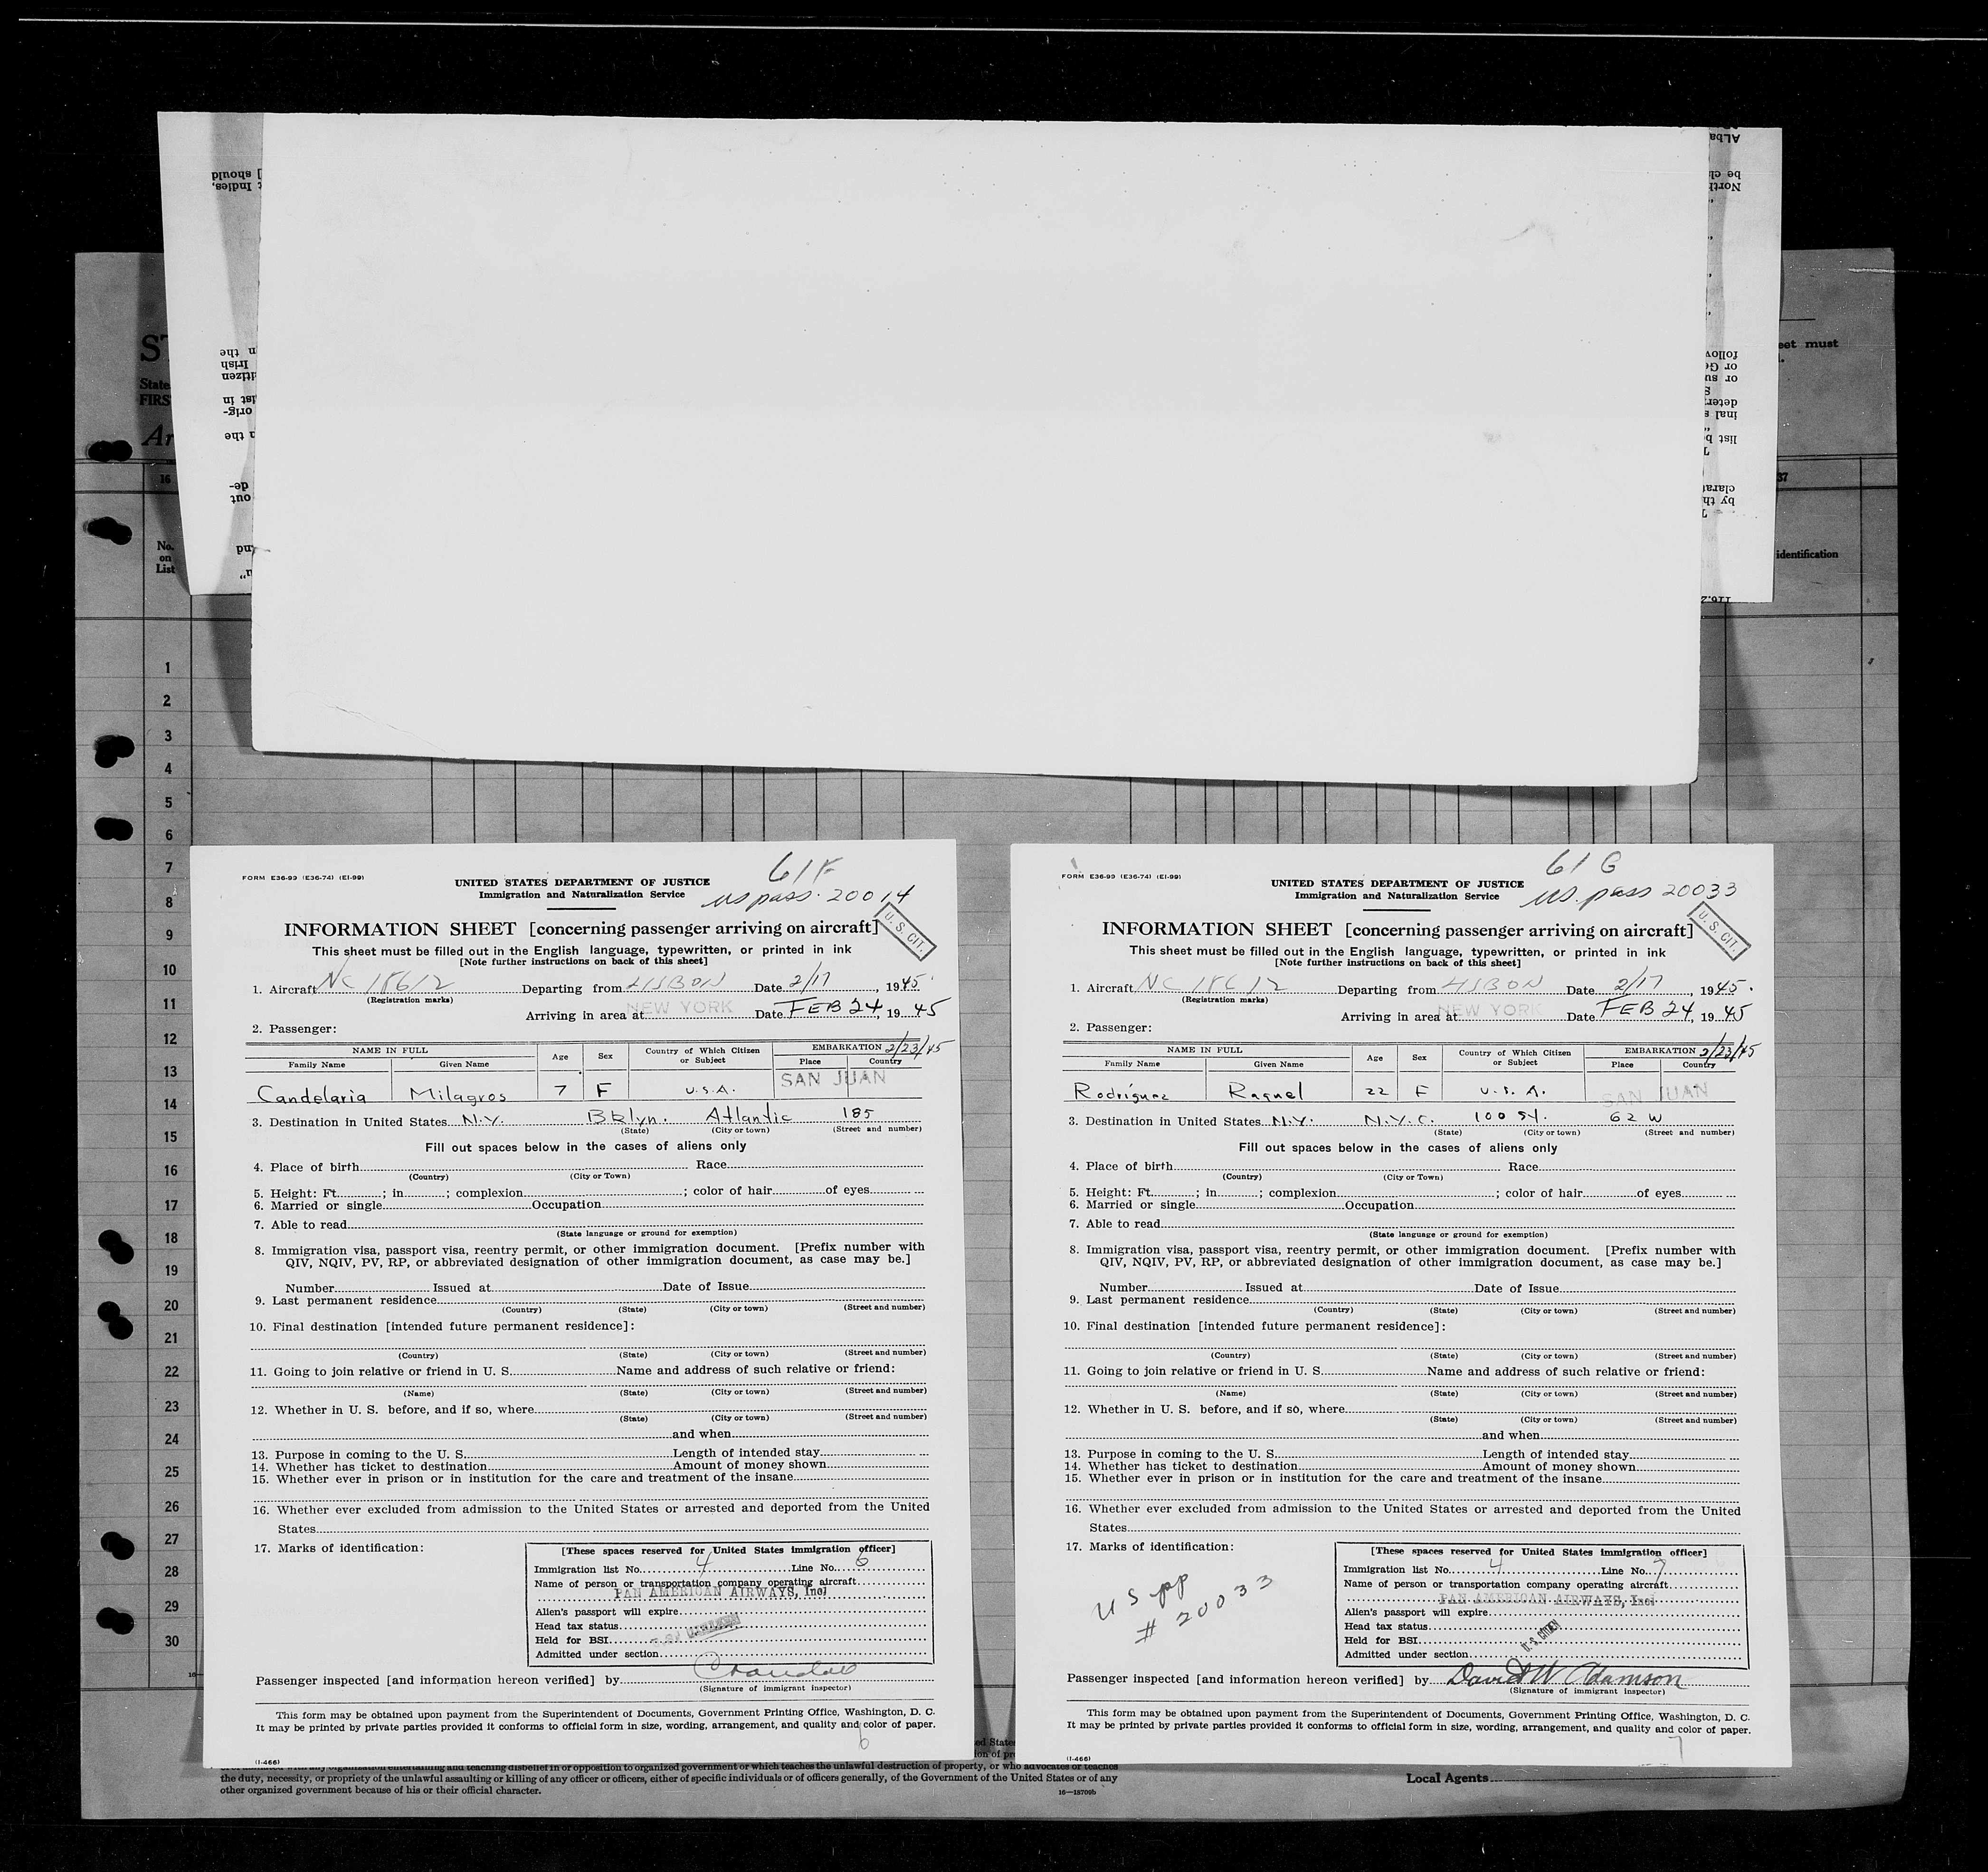 61 F
FORM E36-99 (E36-74) (EI-99)
UNITED STATES DEPARTMENT OF JUSTICE
Immigration and Naturalization Service
us pass. 20014
U. S. CIT.
INFORMATION SHEET [concerning passenger arriving on aircraft]
This sheet must be filled out in the English language, typewritten, or printed in ink
[Note further instructions on back of this sheet]
1. Aircraft NC 18612 Departing from LISBON Date 2/17, 1945
(Registration marks)
Arriving in area at NEW YORK Date FEB 24, 19 45
2. Passenger:
NAME IN FULL Age Sex Country of Which Citizen or Subject EMBARKATION 2/23/45
Family Name Given Name Place Country
Candelaria Milagros 7 F U.S.A. SAN JUAN
3. Destination in United States N.Y. Bklyn. Atlantic 185
(State) (City or town) (Street and number)
Fill out spaces below in the cases of aliens only
4. Place of birth Race
(Country) (City or Town)
5. Height: Ft. ; in. ; complexion ; color of hair of eyes
6. Married or single Occupation
7. Able to read
(State language or ground for exemption)
8. Immigration visa, passport visa, reentry permit, or other immigration document. [Prefix number with
QIV, NQIV, PV, RP, or abbreviated designation of other immigration document, as case may be.]
Number Issued at Date of Issue
9. Last permanent residence
(Country) (State) (City or town) (Street and number)
10. Final destination [intended future permanent residence]:
(Country) (State) (City or town) (Street and number)
11. Going to join relative or friend in U. S. Name and address of such relative or friend:
(Name) (State) (City or town) (Street and number)
12. Whether in U. S. before, and if so, where
(State) (City or town) (Street and number)
and when
13. Purpose in coming to the U. S. Length of intended stay
14. Whether has ticket to destination Amount of money shown
15. Whether ever in prison or in institution for the care and treatment of the insane
16. Whether ever excluded from admission to the United States or arrested and deported from the United
States
17. Marks of identification:
[These spaces reserved for United States immigration officer]
Immigration list No. 4 Line No. 6
Name of person or transportation company operating aircraft
PAN AMERICAN AIRWAYS, Inc]
Alien's passport will expire
Head tax status
Held for BSI
Admitted under section
Passenger inspected [and information hereon verified] by
(Signature of immigrant inspector)
This form may be obtained upon payment from the Superintendent of Documents, Government Printing Office, Washington, D. C.
It may be printed by private parties provided it conforms to official form in size, wording, arrangement, and quality and color of paper.
6
(I-466)
61 G
FORM E36-99 (E36-74) (EI-99)
UNITED STATES DEPARTMENT OF JUSTICE
Immigration and Naturalization Service
us. pass 20033
U. S. CIT.
INFORMATION SHEET [concerning passenger arriving on aircraft]
This sheet must be filled out in the English language, typewritten, or printed in ink
[Note further instructions on back of this sheet]
1. Aircraft NC 18612 Departing from LISBON Date 2/17, 1945.
(Registration marks)
Arriving in area at NEW YORK Date FEB 24, 19 45
2. Passenger:
NAME IN FULL Age Sex Country of Which Citizen or Subject EMBARKATION 2/23/45
Family Name Given Name Place Country
Rodríguez Raquel 22 F U.S.A. SAN JUAN
3. Destination in United States N.Y. N.Y.C. 100 St. 62 W
(State) (City or town) (Street and number)
Fill out spaces below in the cases of aliens only
4. Place of birth Race
(Country) (City or Town)
5. Height: Ft. ; in. ; complexion ; color of hair of eyes
6. Married or single Occupation
7. Able to read
(State language or ground for exemption)
8. Immigration visa, passport visa, reentry permit, or other immigration document. [Prefix number with
QIV, NQIV, PV, RP, or abbreviated designation of other immigration document, as case may be.]
Number Issued at Date of Issue
9. Last permanent residence
(Country) (State) (City or town) (Street and number)
10. Final destination [intended future permanent residence]:
(Country) (State) (City or town) (Street and number)
11. Going to join relative or friend in U. S. Name and address of such relative or friend:
(Name) (State) (City or town) (Street and number)
12. Whether in U. S. before, and if so, where
(State) (City or town) (Street and number)
and when
13. Purpose in coming to the U. S. Length of intended stay
14. Whether has ticket to destination Amount of money shown
15. Whether ever in prison or in institution for the care and treatment of the insane
16. Whether ever excluded from admission to the United States or arrested and deported from the United
States
17. Marks of identification:
U S pp
# 20033
[These spaces reserved for United States immigration officer]
Immigration list No. 4 Line No. 7
Name of person or transportation company operating aircraft
PAN AMERICAN AIRWAYS, Inc]
Alien's passport will expire
Head tax status
Held for BSI U. S. CITIZEN
Admitted under section
Passenger inspected [and information hereon verified] by David W Adamson
(Signature of immigrant inspector)
This form may be obtained upon payment from the Superintendent of Documents, Government Printing Office, Washington, D. C.
It may be printed by private parties provided it conforms to official form in size, wording, arrangement, and quality and color of paper.
7
(I-466)
No.
on
List
identification
1
2
3
4
5
6
7
8
9
10
11
12
13
14
15
16
17
18
19
20
21
22
23
24
25
26
27
28
29
30
the duty, necessity, or propriety of the unlawful assaulting or killing of any officer or officers, either of specific individuals or of officers generally, of the Government of the United States or of any
other organized government because of his or their official character.
16—18709b
Local Agents